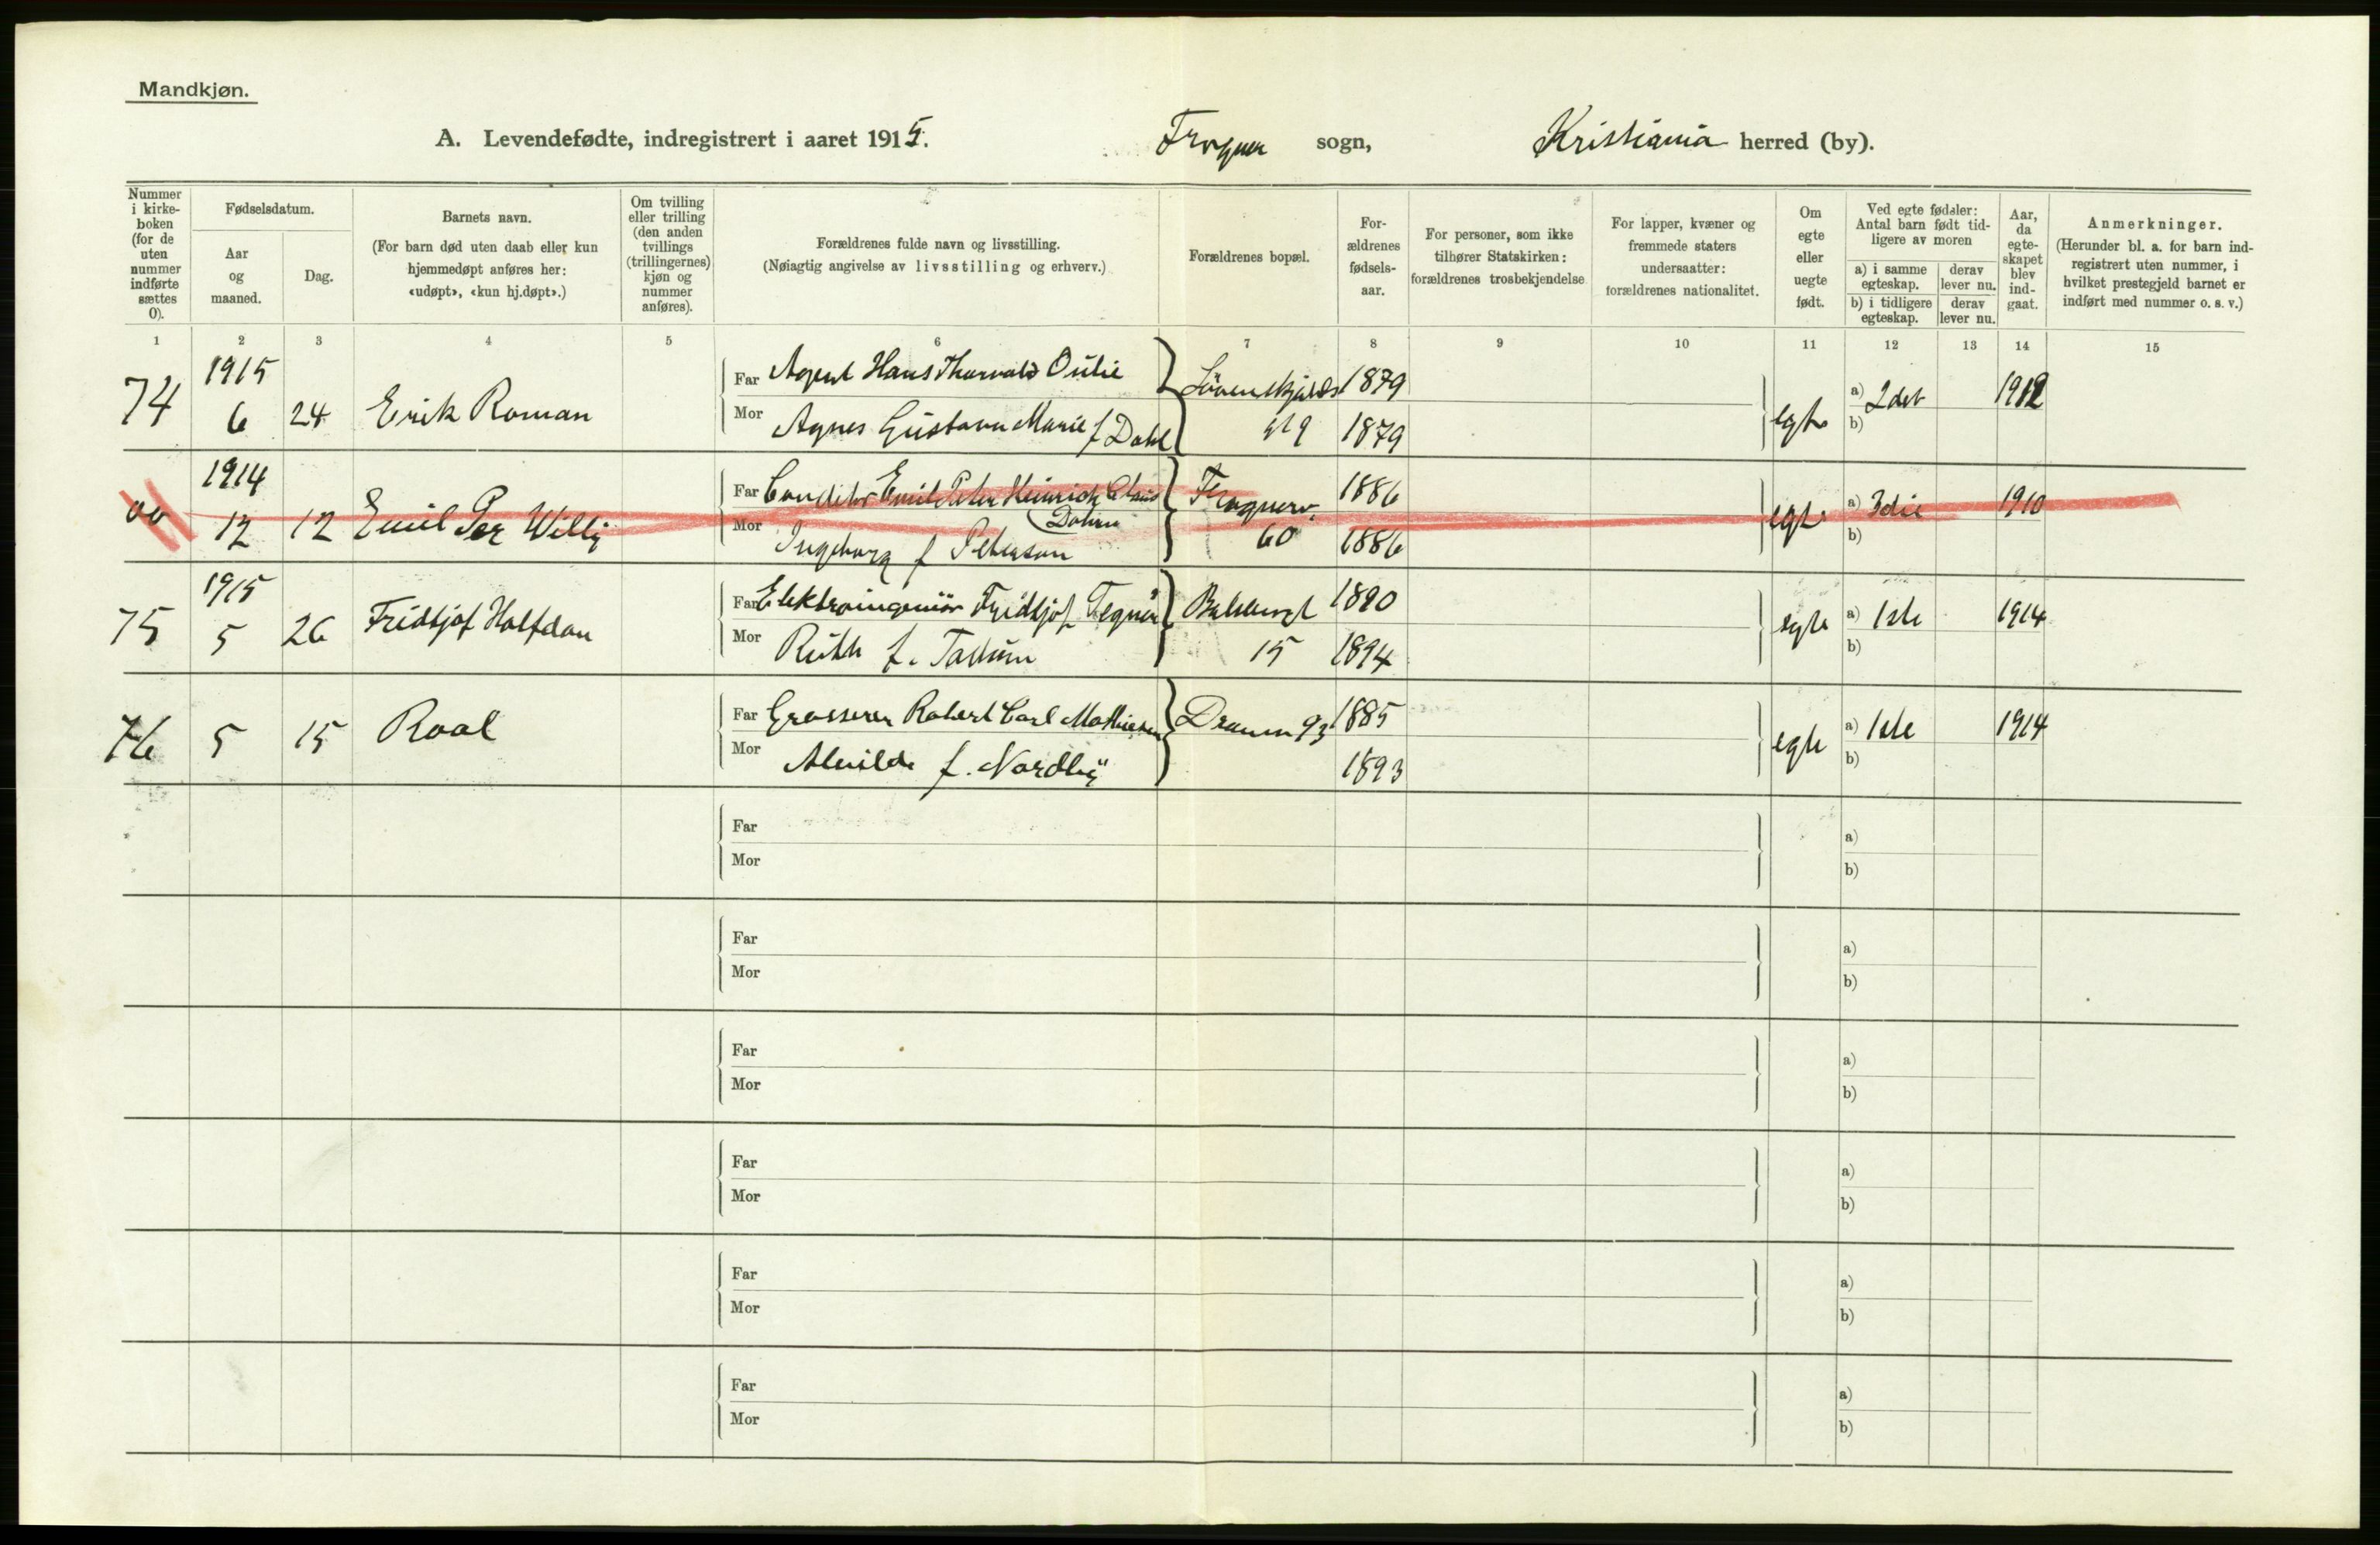 Mandkjøn.
A. Levendefødte, indregistrert i aaret 1915. Frogner sogn, Kristiania herred (by).
Nummer i kirke-boken (for de uten nummer indførte sættes 0).
Fødselsdatum.
Aar og maaned.
Dag.
Barnets navn.
(For barn død uten daab eller kun hjemmedøpt anføres her: «udøpt», «kun hj.døpt».)
Om tvilling eller trilling (den anden tvillings (trillingernes) kjøn og nummer anføres).
Forældrenes fulde navn og livsstilling.
(Nøiagtig angivelse av livsstilling og erhverv.)
Forældrenes bopæl.
For-ældrenes fødsels-aar.
For personer, som ikke tilhører Statskirken: forældrenes trosbekjendelse
For lapper, kvæner og fremmede staters undersaatter: forældrenes nationalitet.
Om egte eller uegte født.
Ved egte fødsler: Antal barn født tid-ligere av moren
a) i samme egteskap.
derav lever nu.
b) i tidligere egteskap.
derav lever nu.
Aar, da egte-skapet blev ind-gaat.
Anmerkninger.
(Herunder bl. a. for barn ind-registrert uten nummer, i hvilket prestegjeld barnet er indført med nummer o. s. v.)
1 2 3 4 5 6 7 8 9 10 11 12 13 14 15
74 1915 6 24 Erik Roman
Far Agent Hans Thorvald Oulie Løvenskjolds 1879
Mor Agnes Gustava Marie f Dahl gt 9 1879
egte a) 2det b) 1912
00 1914 12 12 Emil Per Willy
Far Conditor Emil Peter Heinrich Claus Dohrn Frognerv. 1886
Mor Ingeborg f Peterson 60 1886
egte a) 3die b) 1910
75 1915 5 26 Fridtjof Halfdan
Far Elektroingeniør Fridtjof Tegnér 1890
Mor Ruth f. 15 1894
egte a) 1ste b) 1914
76 5 15 Roal
Far Grosserer Robert Carl Mathiesen Dramm 93 1885
Mor Alvilde f. Nordby 1893
egte a) 1ste b) 1914
Far a)
Mor b)
Far a)
Mor b)
Far a)
Mor b)
Far a)
Mor b)
Far a)
Mor b)
Far a)
Mor b)